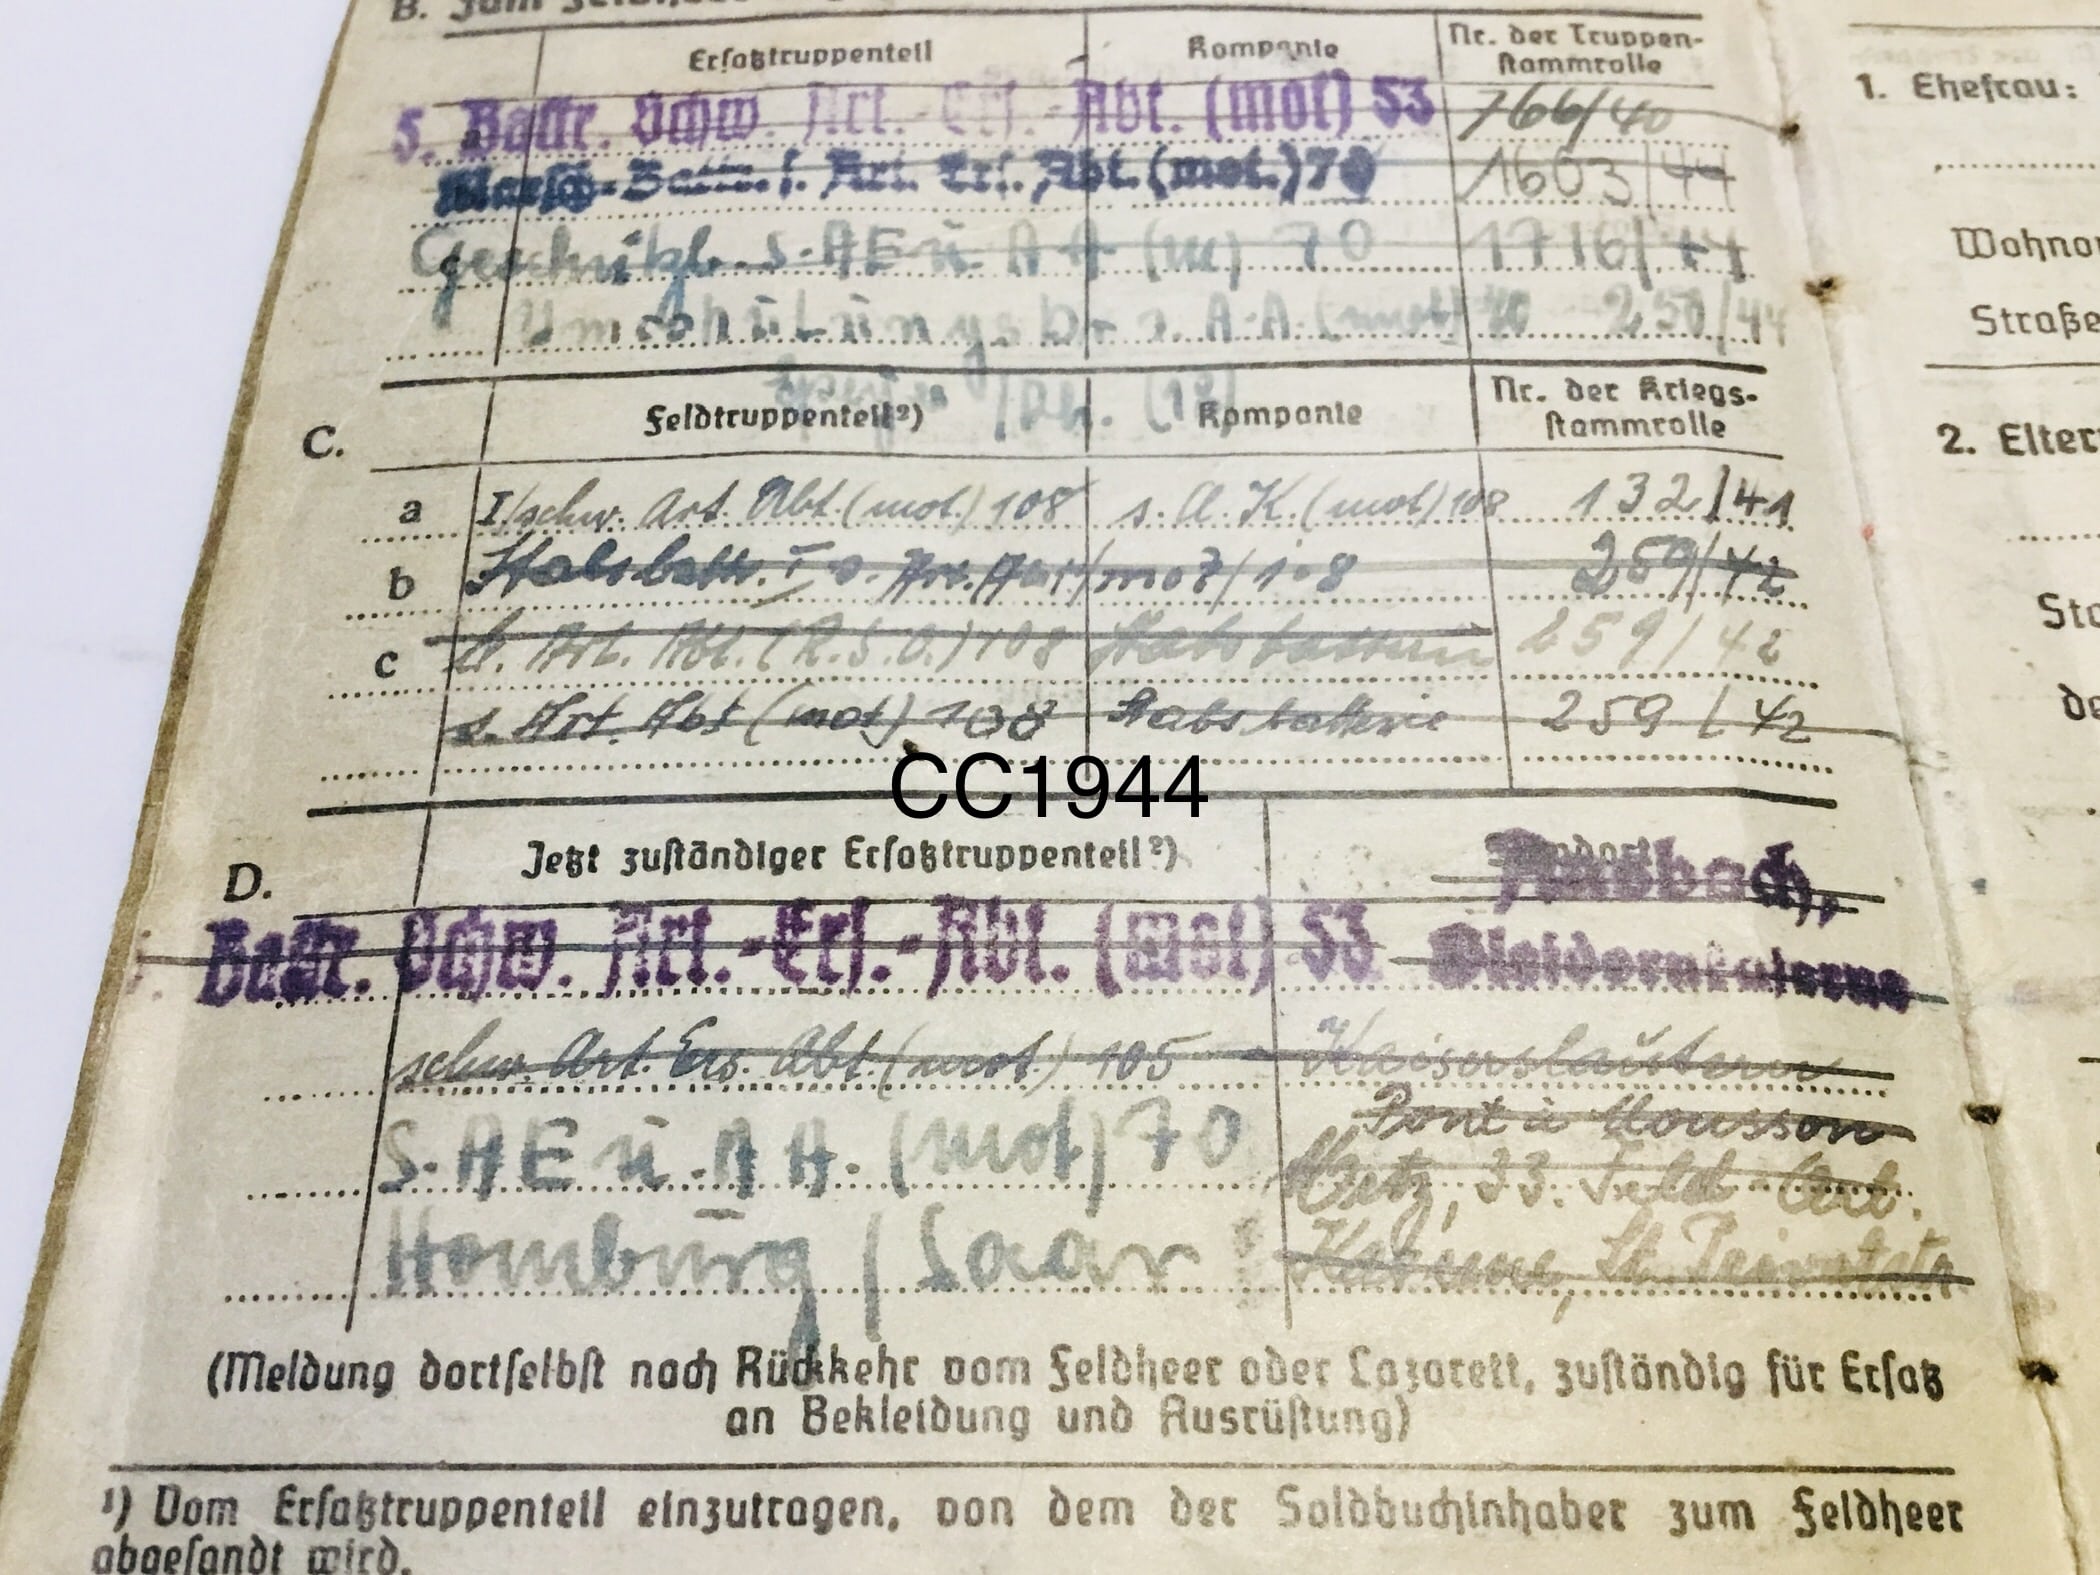 B. Zum
Ersatztruppenteil Kompanie Nr. der Truppen-
stammrolle
5. Battr. Schw. Art.-Ers.-Abt. (mot) 53 766/40
a
Marsch-Battr. s. Art. Ers. Abt. (mot.) 70 1603/44
S. A E u A A (m) 70 1716/44
Umschulungsb A.A. (mot) 70 250/44
C. Feldtruppenteil²) Kompanie Nr. der Kriegs-
stammrolle
a I/schw. Art. Abt. (mot.) 108 s. A. K. (mot) 108 132/41
b Stabsbatt. I s. Art. /mot/ 108 259/42
c s. Art. Abt. (R.S.O.) 108 Stabsbatterie 259/42
s. Art. Abt (mot) 108 Stabsbatterie 259/42
CC1944
D. Jetzt zuständiger Ersatztruppenteil²) Standort
Ansbach,
Battr. Schw. Art.-Ers.-Abt. (mot) 53
schw. Art. Ers. Abt. (mot.) 105 Kaiserslautern
Pont à Mousson
S. A E u. A A. (mot) 70 Metz, 33. Feld-Art.
Homburg / Saar Kaserne, St.
(Meldung dortselbst nach Rückkehr vom Feldheer oder Lazarett, zuständig für Ersatz
an Bekleidung und Ausrüstung)
¹) Vom Ersatztruppenteil einzutragen, von dem der Soldbuchinhaber zum Feldheer
abgesandt wird.
1. Ehefrau:
Straße
2.